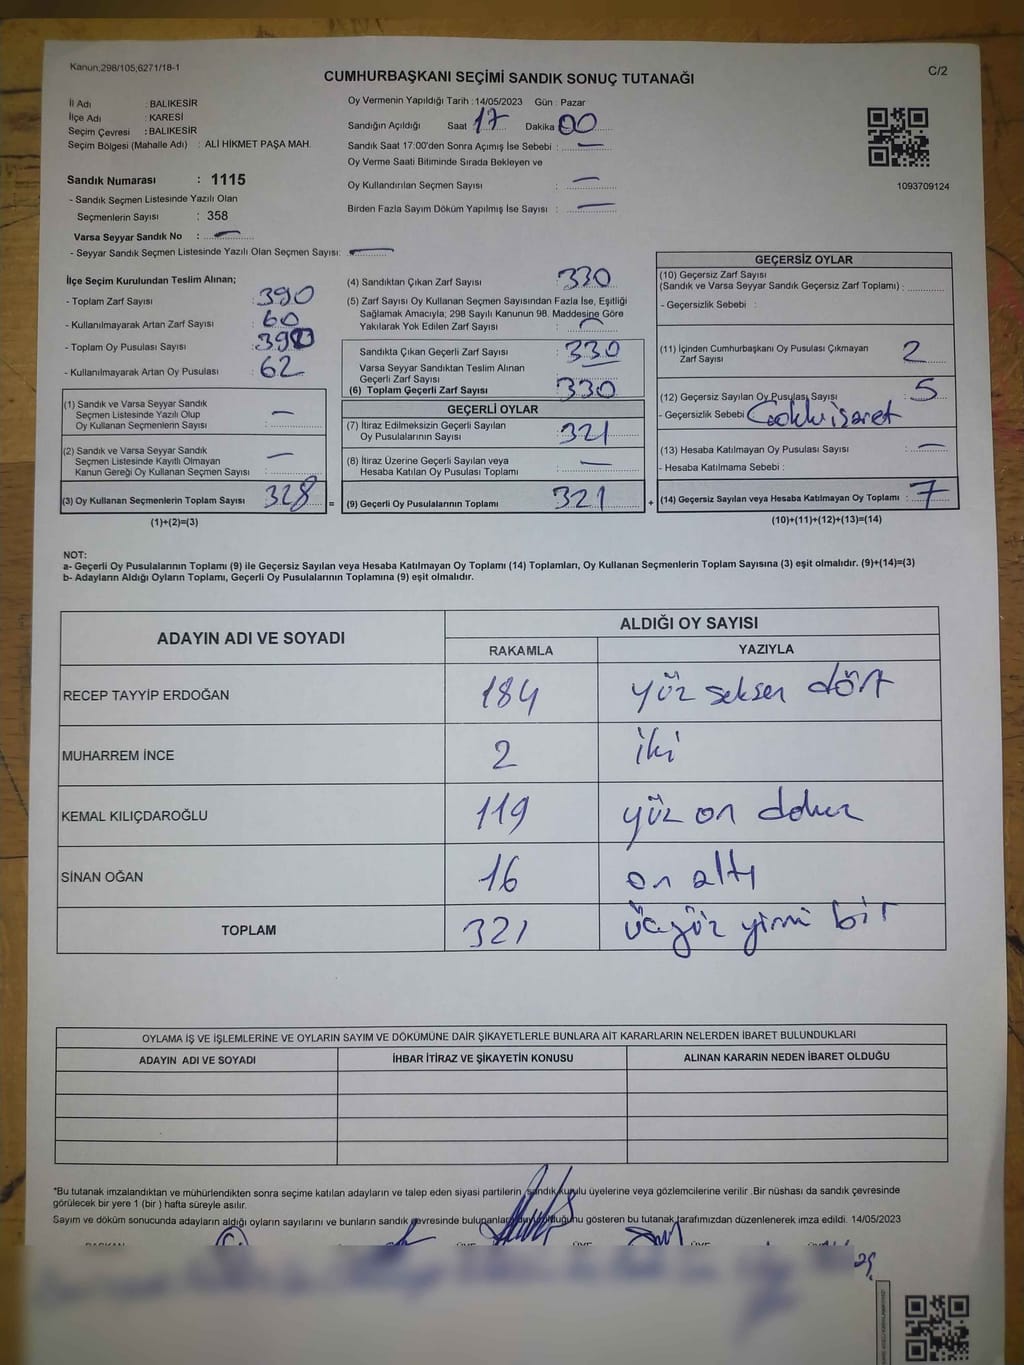 Kanun;298/105;6271/18-1
C/2
CUMHURBAŞKANI SEÇİMİ SANDIK SONUÇ TUTANAĞI
İl Adı : BALIKESİR
İlçe Adı : KARESİ
Seçim Çevresi : BALIKESİR
Seçim Bölgesi (Mahalle Adı) : ALİ HİKMET PAŞA MAH.
Sandık Numarası : 1115
- Sandık Seçmen Listesinde Yazılı Olan
Seçmenlerin Sayısı : 358
Varsa Seyyar Sandık No : —
- Seyyar Sandık Seçmen Listesinde Yazılı Olan Seçmen Sayısı: —
Oy Vermenin Yapıldığı Tarih : 14/05/2023 Gün : Pazar
Sandığın Açıldığı Saat 17 Dakika 00
Sandık Saat 17:00'den Sonra Açımış İse Sebebi : —
Oy Verme Saati Bitiminde Sırada Bekleyen ve
Oy Kullandırılan Seçmen Sayısı : —
Birden Fazla Sayım Döküm Yapılmış İse Sayısı : —
1093709124
İlçe Seçim Kurulundan Teslim Alınan;
- Toplam Zarf Sayısı : 390
- Kullanılmayarak Artan Zarf Sayısı : 60
- Toplam Oy Pusulası Sayısı : 390
- Kullanılmayarak Artan Oy Pusulası : 62
(1) Sandık ve Varsa Seyyar Sandık
Seçmen Listesinde Yazılı Olup
Oy Kullanan Seçmenlerin Sayısı : —
(2) Sandık ve Varsa Seyyar Sandık
Seçmen Listesinde Kayıtlı Olmayan
Kanun Gereği Oy Kullanan Seçmen Sayısı : —
(3) Oy Kullanan Seçmenlerin Toplam Sayısı 328 =
(1)+(2)=(3)
(4) Sandıktan Çıkan Zarf Sayısı : 330
(5) Zarf Sayısı Oy Kullanan Seçmen Sayısından Fazla İse, Eşitliği
Sağlamak Amacıyla; 298 Sayılı Kanunun 98. Maddesine Göre
Yakılarak Yok Edilen Zarf Sayısı : —
Sandıkta Çıkan Geçerli Zarf Sayısı : 330
Varsa Seyyar Sandıktan Teslim Alınan
Geçerli Zarf Sayısı :
(6) Toplam Geçerli Zarf Sayısı : 330
GEÇERLİ OYLAR
(7) İtiraz Edilmeksizin Geçerli Sayılan
Oy Pusulalarının Sayısı : 321
(8) İtiraz Üzerine Geçerli Sayılan veya
Hesaba Katılan Oy Pusulası Toplamı : —
(9) Geçerli Oy Pusulalarının Toplamı : 321 +
GEÇERSİZ OYLAR
(10) Geçersiz Zarf Sayısı
(Sandık ve Varsa Seyyar Sandık Geçersiz Zarf Toplamı) :
- Geçersizlik Sebebi :
(11) İçinden Cumhurbaşkanı Oy Pusulası Çıkmayan
Zarf Sayısı : 2
(12) Geçersiz Sayılan Oy Pusulası Sayısı : 5
- Geçersizlik Sebebi
(13) Hesaba Katılmayan Oy Pusulası Sayısı : —
- Hesaba Katılmama Sebebi :
(14) Geçersiz Sayılan veya Hesaba Katılmayan Oy Toplamı : 7
(10)+(11)+(12)+(13)=(14)
NOT:
a- Geçerli Oy Pusulalarının Toplamı (9) ile Geçersiz Sayılan veya Hesaba Katılmayan Oy Toplamı (14) Toplamları, Oy Kullanan Seçmenlerin Toplam Sayısına (3) eşit olmalıdır. (9)+(14)=(3)
b- Adayların Aldığı Oyların Toplamı, Geçerli Oy Pusulalarının Toplamına (9) eşit olmalıdır.
ADAYIN ADI VE SOYADI
ALDIĞI OY SAYISI
RAKAMLA YAZIYLA
RECEP TAYYİP ERDOĞAN 184 yüz seksen dört
MUHARREM İNCE 2 iki
KEMAL KILIÇDAROĞLU 119 yüz on dokuz
SİNAN OĞAN 16 on altı
TOPLAM 321 üçyüz yirmi bir
OYLAMA İŞ VE İŞLEMLERİNE VE OYLARIN SAYIM VE DÖKÜMÜNE DAİR ŞİKAYETLERLE BUNLARA AİT KARARLARIN NELERDEN İBARET BULUNDUKLARI
ADAYIN ADI VE SOYADI İHBAR İTİRAZ VE ŞİKAYETİN KONUSU ALINAN KARARIN NEDEN İBARET OLDUĞU
*Bu tutanak imzalandıktan ve mühürlendikten sonra seçime katılan adayların ve talep eden siyasi partilerin sandık kurulu üyelerine veya gözlemcilerine verilir .Bir nüshası da sandık çevresinde
görülecek bir yere 1 (bir ) hafta süreyle asılır.
Sayım ve döküm sonucunda adayların aldığı oyların sayılarını ve bunların sandık çevresinde bulunanlara duyurulduğunu gösteren bu tutanak tarafımızdan düzenlenerek imza edildi. 14/05/2023